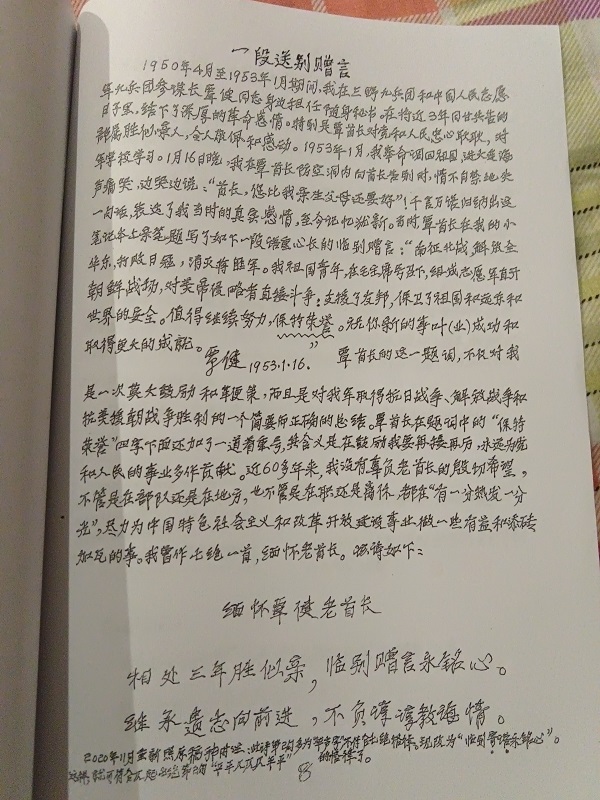 一段送别赠言
1950年4月至1953年1月期间，我在三野九兵团和中国人民志愿
军九兵团参谋长覃健同志身边担任随身秘书。在将近3年同甘共苦的
日子里，结下了深厚的革命感情。特别是覃首长对党和人民忠心耿耿，对
部属胜似亲人，令人敬佩和感动。1953年1月，我奉命调回祖国，进大连海
军学校学习。1月16日晚，我在覃首长防空洞内向首长告别时，情不自禁地失
声痛哭，边哭边说："首长，您比我亲生父母还要好"！千言万语归纳出这
一句话，表达了我当时的真实感情，至今记忆犹新。当时，覃首长在我的小
笔记本上亲笔题写了如下一段语重心长的临别赠言："南征北战，解放全
华东，打败日寇，消灭蒋匪军。我祖国青年，在毛主席号召下，组成志愿军直开
朝鲜战场，对美帝侵略者直接斗争；支援了友邦，保卫了祖国和远东和
世界的安全。值得继续努力，保特荣誉。祝你新的事叶(业)成功和
取得更大的成就。" 覃健 1953.1.16. 覃首长的这一题词，不仅对我
是一次莫大鼓励和鞭策，而且是对我军取得抗日战争、解放战争和
抗美援朝战争胜利的一个简要而正确的总结。覃首长在题词中的"保特
荣誉"四字下面还加了一道着重号，其含义是在鼓励我要再接再厉，永远为党
和人民的事业多作贡献。近60多年来，我没有辜负老首长的殷切希望，
不管是在部队还是在地方，也不管是在职还是离休，都在"有一分热发一分
光"，尽力为中国特色社会主义和改革开放建设事业做一些有益和添砖
加瓦的事。我曾作七绝一首，缅怀老首长。恭请如下：
缅怀覃健老首长
相处三年胜似亲，临别赠言永铭心。
继承遗志向前进，不负谆谆教诲情。
2020年11月重新照原稿抄时 不符合七绝格律。现改为"临别 永铭心"。
"平平仄仄仄平平" 的格律了。
8